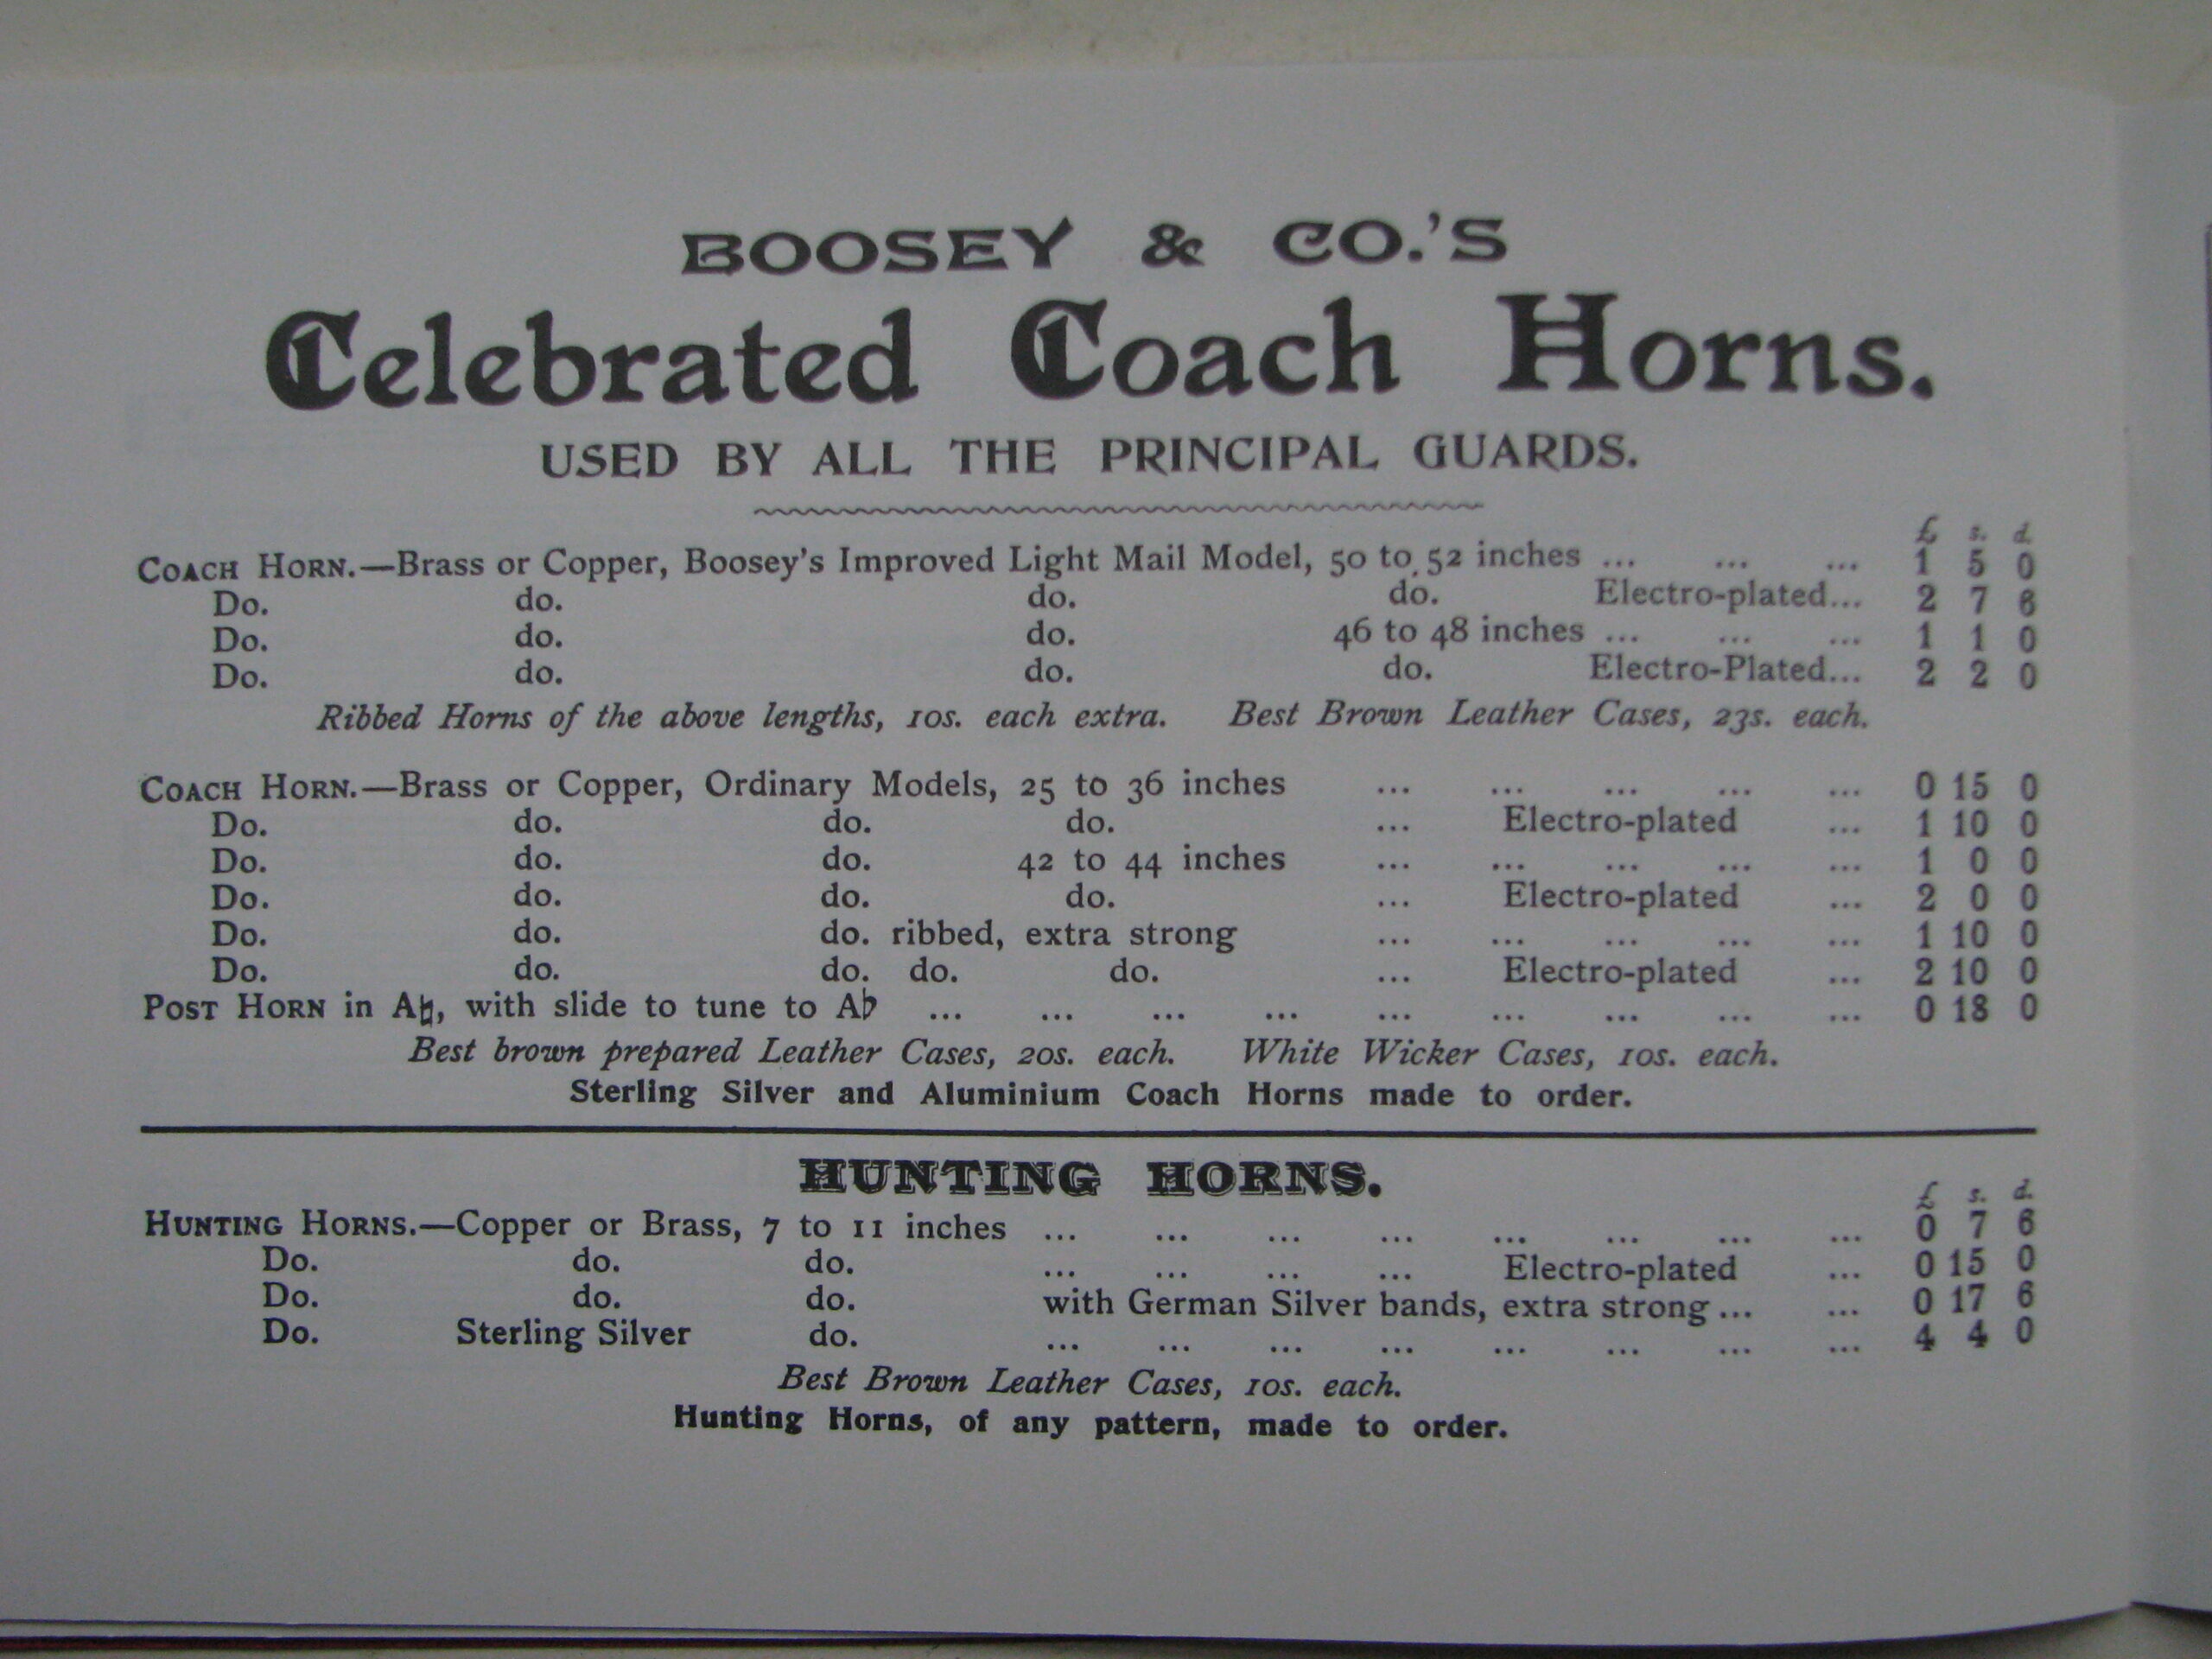 BOOSEY & CO.'S
Celebrated Coach Horns.
USED BY ALL THE PRINCIPAL GUARDS.
£ s. d.
COACH HORN.—Brass or Copper, Boosey's Improved Light Mail Model, 50 to 52 inches ... ... ... 1 5 0
Do. do. do. do. Electro-plated... 2 7 6
Do. do. do. 46 to 48 inches ... ... ... 1 1 0
Do. do. do. do. Electro-Plated... 2 2 0
Ribbed Horns of the above lengths, 10s. each extra. Best Brown Leather Cases, 23s. each.
COACH HORN.—Brass or Copper, Ordinary Models, 25 to 36 inches ... ... ... ... ... 0 15 0
Do. do. do. do. ... Electro-plated ... 1 10 0
Do. do. do. 42 to 44 inches ... ... ... ... ... 1 0 0
Do. do. do. do. ... Electro-plated ... 2 0 0
Do. do. do. ribbed, extra strong ... ... ... ... ... 1 10 0
Do. do. do. do. do. ... Electro-plated ... 2 10 0
POST HORN in A♮, with slide to tune to A♭ ... ... ... ... ... ... ... ... ... 0 18 0
Best brown prepared Leather Cases, 20s. each. White Wicker Cases, 10s. each.
Sterling Silver and Aluminium Coach Horns made to order.
HUNTING HORNS.
£ s. d.
HUNTING HORNS.—Copper or Brass, 7 to 11 inches ... ... ... ... ... ... ... ... 0 7 6
Do. do. do. ... ... ... ... Electro-plated ... 0 15 0
Do. do. do. with German Silver bands, extra strong... ... 0 17 6
Do. Sterling Silver do. ... ... ... ... ... ... ... ... 4 4 0
Best Brown Leather Cases, 10s. each.
Hunting Horns, of any pattern, made to order.